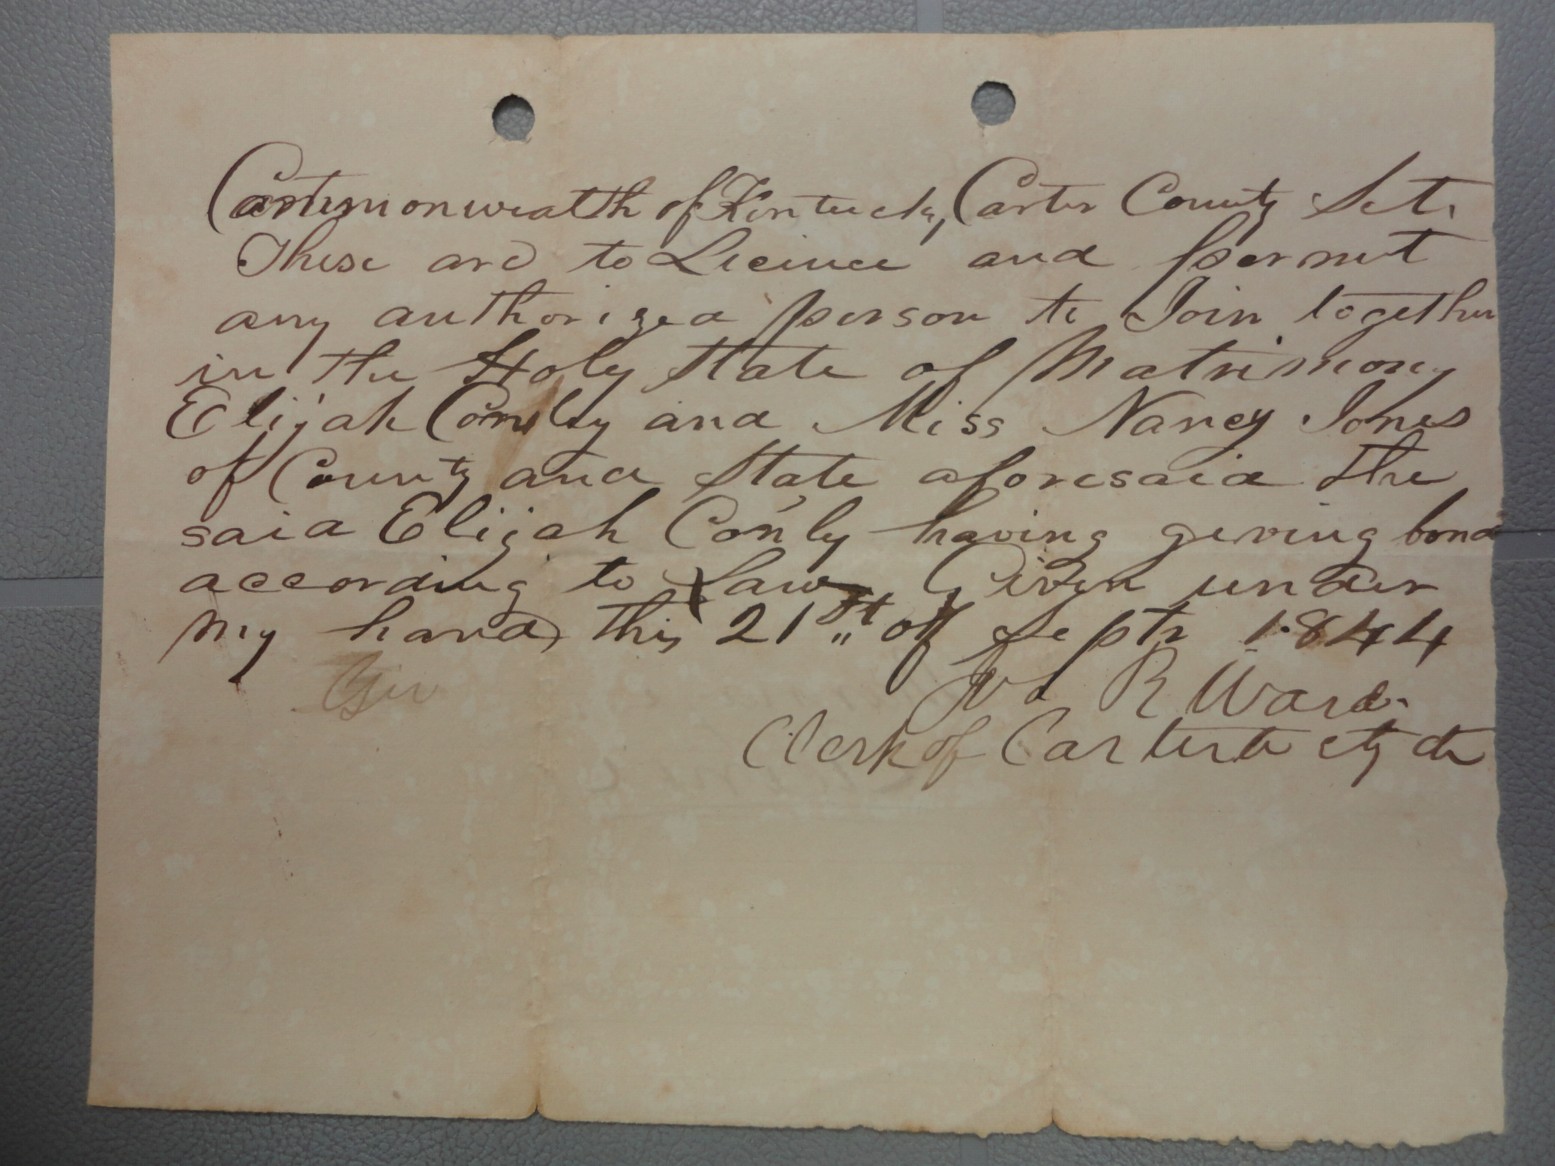 Commonwealth of Kentucky, Carter County Sct.
These are to Licince and permit
any authorized person to Join together
in the Holy State of Matrimony
Elijah Conley and Miss Nancy Jones
of County and State aforesaid the
said Elijah Conly having geving bond
according to Law Given under
my hand, this 21st of Septr 1844
R Ward.
Clerk of Carter